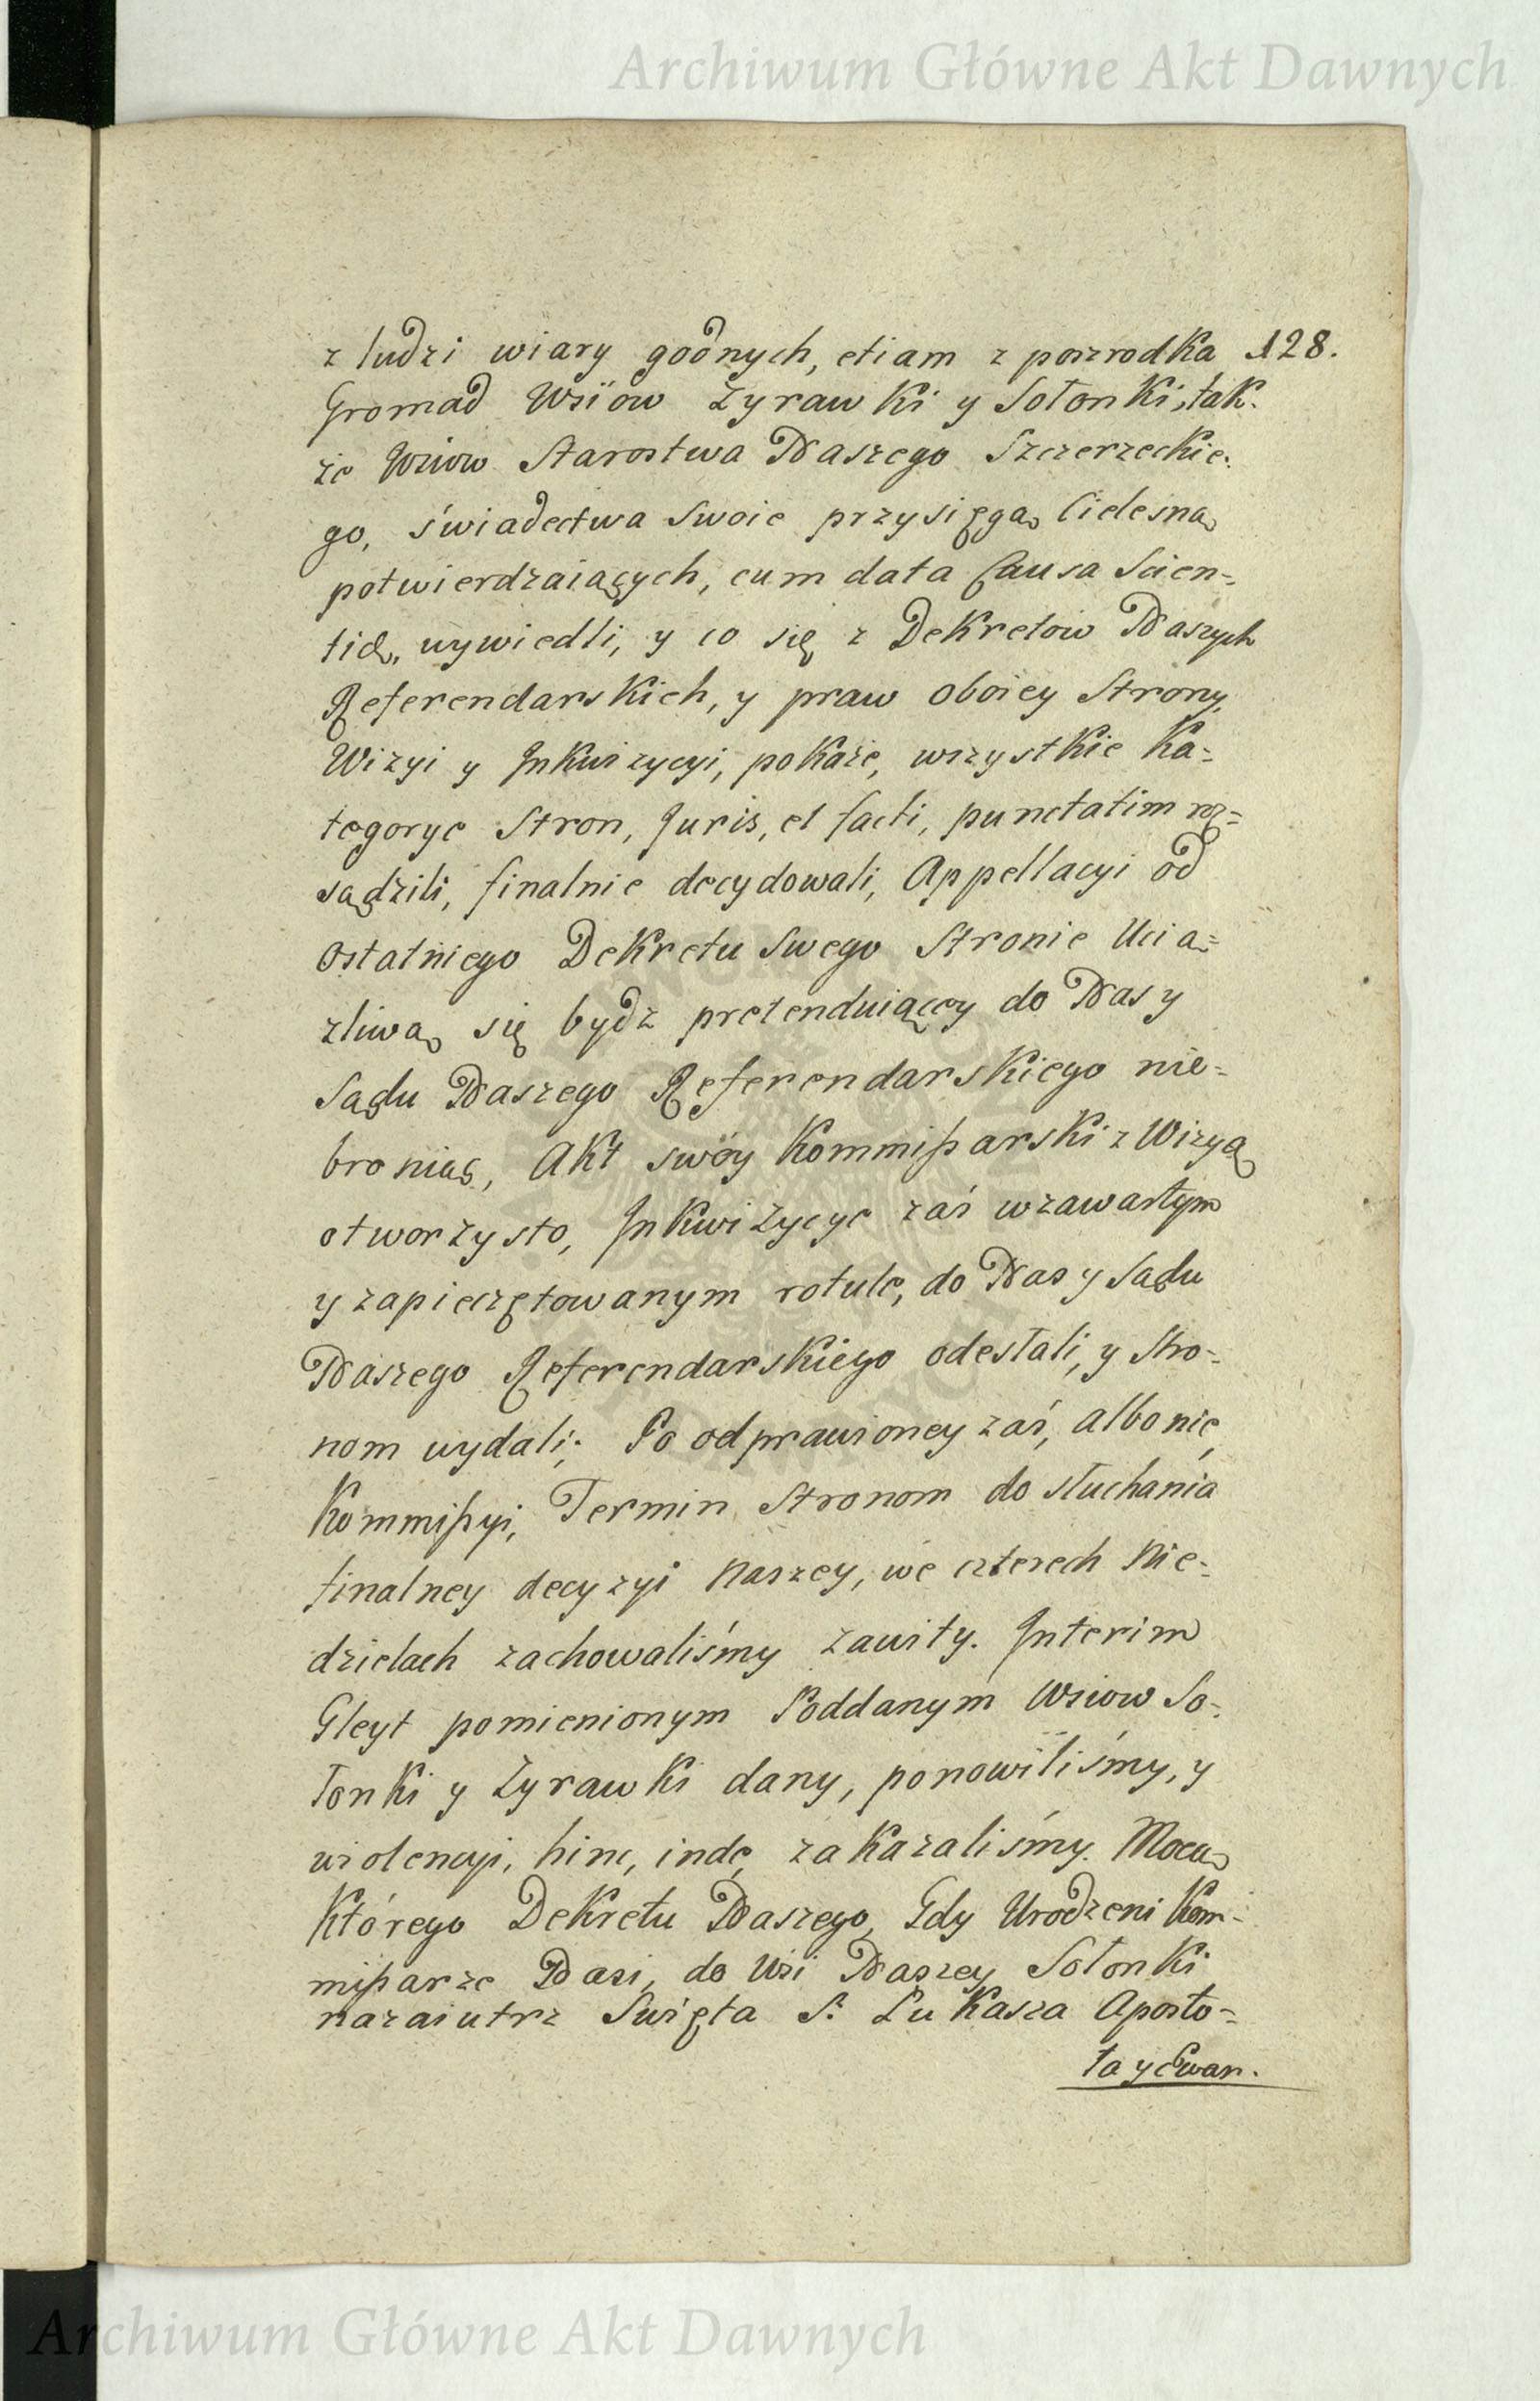 Archiwum Główne Akt Dawnych
z ludzi wiary godnych, etiam z poszrodka 128.
Gromad Wsiow Zyrawki y Sołonki, tak-
że Wsiow Starostwa Naszego Szczerzeckie-
go, świadectwa swoie przysięgą Cielesną
potwierdzaiących, cum data Causa Scien=
tiæ, wywiedli, y co się z Dekretow Naszych
Referendarskich, y praw oboiey Strony,
Wizyi y Inkwizycyi, pokaże, wszystkie Ka=
tegorye Stron, Juris, et facti, punctatim roz=
sądzili, finalnie decydowali, Appellacyi od
ostatniego Dekretu swego Stronie Ucią=
zliwą się bydz pretenduiącey do Nas y
Sądu Naszego Referendarskiego nie=
broniąc, Akt swóy Kommißarski z Wizyą
otworzysto, Inkwizycye zaś w zawartym
y zapieczętowanym rotule, do Nas y Sądu
Naszego Referendarskiego odesłali, y Stro=
nom wydali; Po odprawioney zaś, albo nie,
Kommißyi, Termin Stronom do słuchania
finalney decyzyi Naszey, we czterech Nie=
dzielach zachowaliśmy zawity. Interim
Gleyt pomienionym Poddanym Wsiow So=
łonki y Zyrawki dany, ponowiliśmy, y
wiolencyi, hinc, inde, zakazaliśmy. Mocą
Którego Dekretu Naszego, Gdy Urodzeni Kom-
mißarze Nasi, do Wsi Naszey Sołonki
nazaiutrz Swięta S. Łukasza Aposto=
ła y Ewan.
Archiwum Główne Akt Dawnych